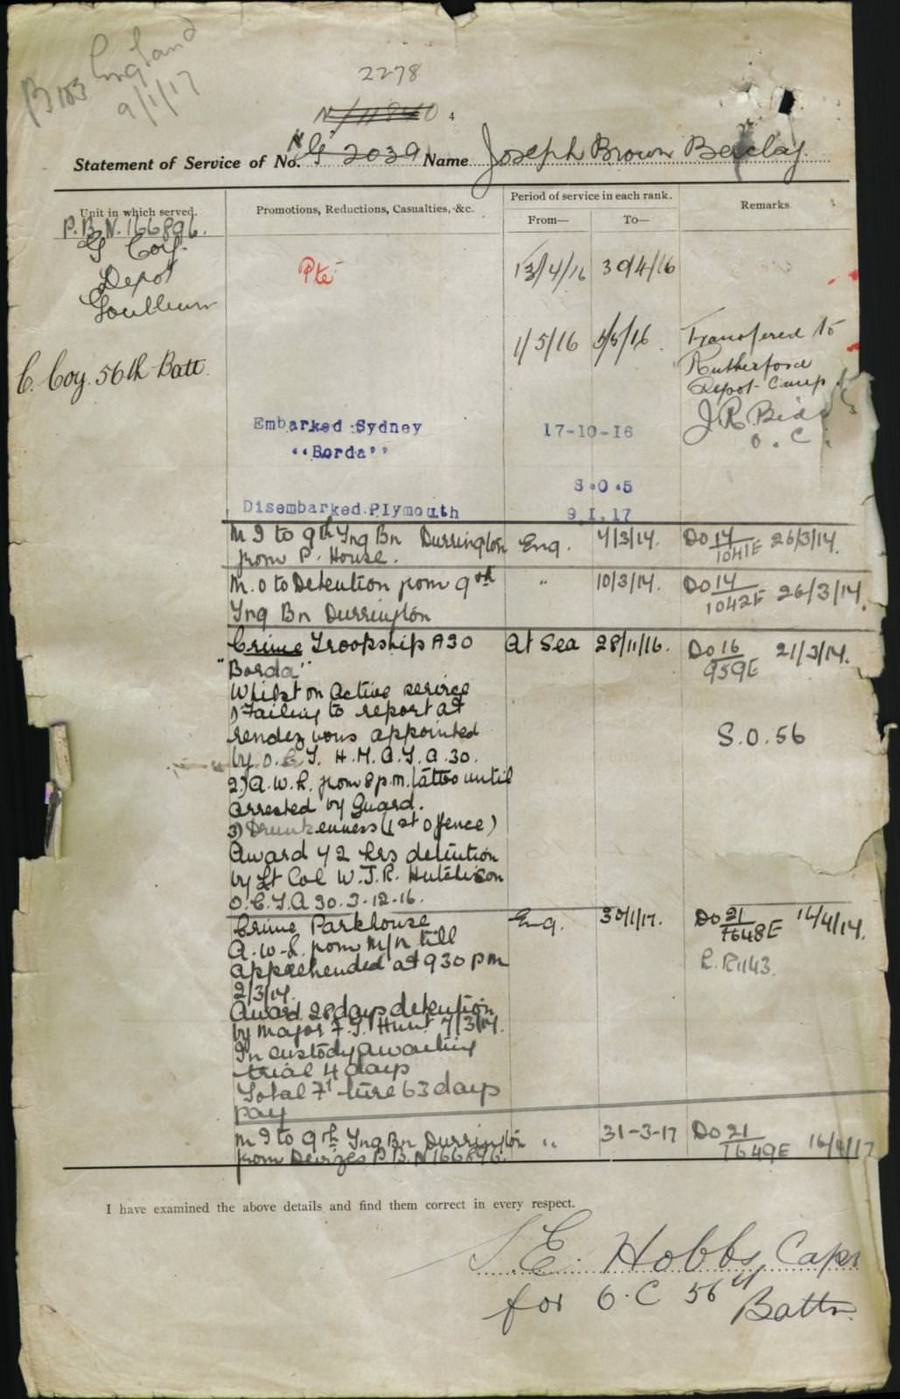 B103 England
9/1/17
2278
N/11840 4
Statement of Service of No. N G 2039 Name Joseph Brown Barclay.
Unit in which served.
Promotions, Reductions, Casualties, &c.
Period of service in each rank.
From—
To—
Remarks
P.B.N. 166896.
G Coy.
Depot
Goulburn
Pte
13/4/16 30/4/16
C. Coy. 56th Batt.
1/5/16 5/6/16
Transfered to
Rutherford
Depot Camp
J R
O.C.
Embarked Sydney
"Borda"
17-10-16
S.O.5
Disembarked Plymouth
9 1.17
M I to 9th Tng Bn Durrington
from P. House.
Eng. 7/3/17. Do 14/1041E 26/3/17.
M.O to Detention from 9th
Tng Bn Durrington
" 10/3/17. Do 14/1042E 26/3/17.
Crime Troopship A30
"Borda"
At Sea 28/11/16. Do 16/959E 21/3/17.
Whilst on Active service
1) Failing to report at
rendez vous appointed
by O.C.T. H.M.A.T. A.30.
S.O.56
2) A.W.L. from 8 p.m. tattoo until
arrested by Guard.
3) Drunkenness (1st Offence)
Award 72 hrs detention
by Lt Col W.J.R. Hutchison
O.C.T.A 30. 3-12-16.
Crime Parkhouse
Eng. 30/1/17. Do 21/1648E 16/4/17.
A.W.L. from M/n till
apprehended at 930 pm
2/3/17.
R.R1143.
Award 28 days detention
by Major F.T. Hunt 7/3/17.
In custody awaiting
trial 4 days
Total 7'ture 63 days
pay
M I to 9th Tng Bn Durrington
from Devizes P.B.N 166896.
" 31-3-17 Do 21/1649E 16/4/17
I have examined the above details and find them correct in every respect.
S.E. Hobbs, Capt
for O.C 56th
Battn